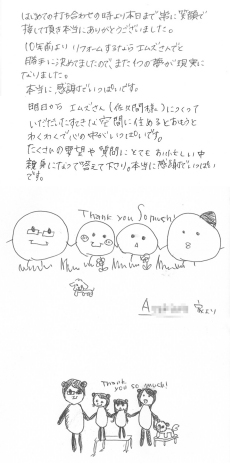 はじめての打ち合わせの時より本日まで常に笑顔で
接して頂き本当にありがとうございました。
10年前より リフォームするならエムズさんでと
勝手に決めてましたので、また1つの夢が現実に
なりました。
本当に感謝でいっぱいです。
明日から エムズさん(佐久間様)につくって
いただいたすてきな空間に住めるとおもうと
わくわくで心の中がいっぱいです。
たくさんの要望や質問にとてもお忙しい中
親身になって答えて下さり。本当に感謝でいっぱい
です。
Thank you So much!
A
家より
Thank
you so much!